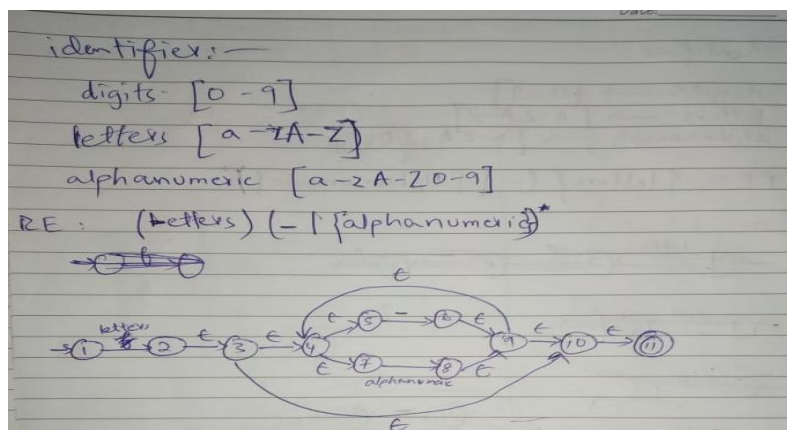 Date:
identifier:-
digits [0-9]
letters [a-zA-Z]
alphanumeric [a-zA-Z0-9]
RE: (Letters) (- | {alphanumeric})*
ε
letters ε ε ε 5 - 6 ε ε ε
1 2 3 4 9 10 11
ε 7 8 ε
alphanumeric
ε